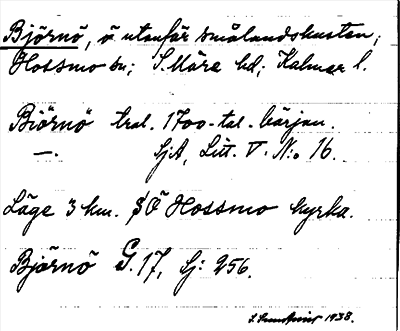 Björnö, ö utanför smålandskusten;
Hossmo sn; S. Möre hd; Kalmar l.
Biörnö trol. 1700-tal. början.
—. LjA, Litt. V. N:o 16.
Läge 3 km. SÖ Hossmo kyrka.
Björnö G. 17, Lj: 256.
1938.